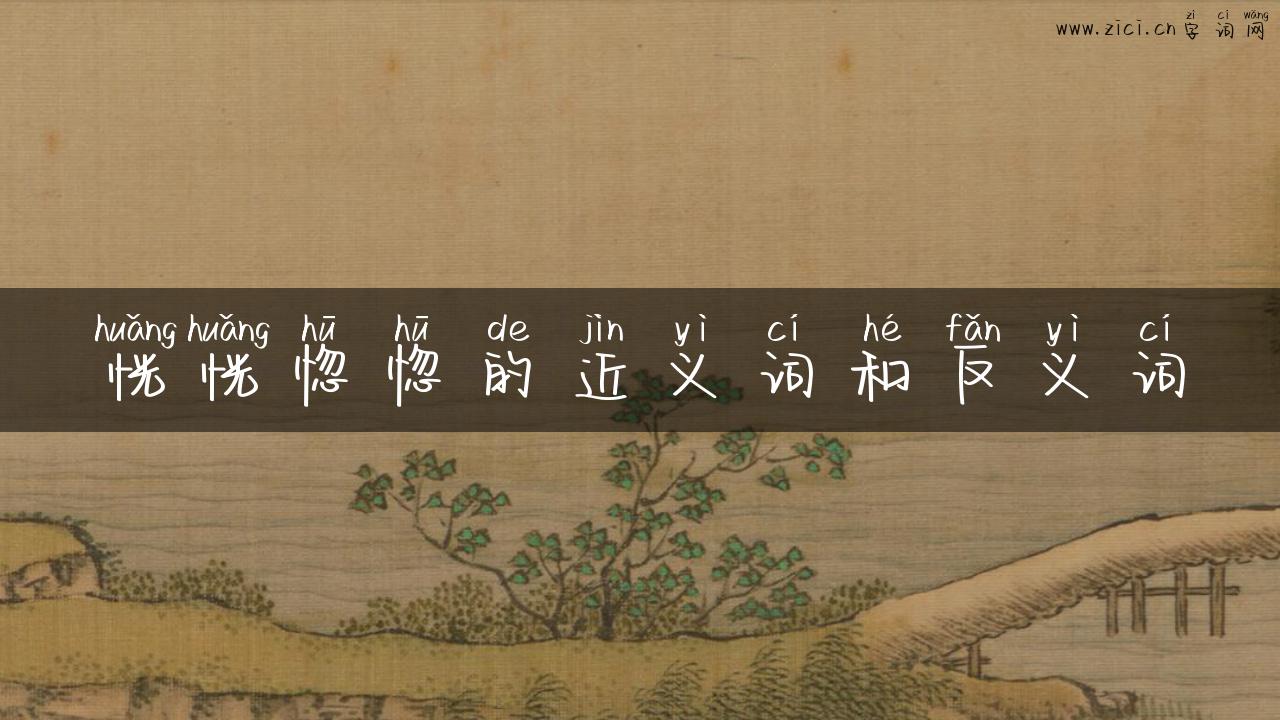 zì cí wǎng
www.zici.cn 字词网
huǎng huǎng hū hū de jìn yì cí hé fǎn yì cí
恍恍惚惚的近义词和反义词